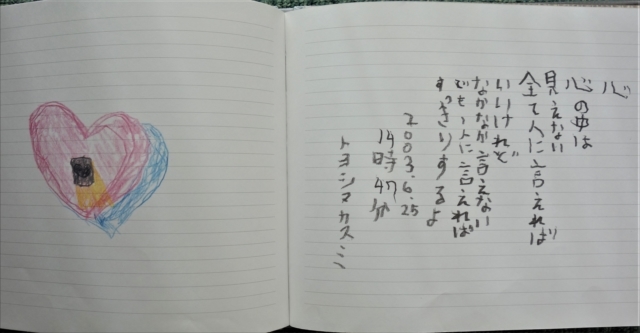 心
心の中は
見えない
全て人に言えれば
いいけれど
なかなか言えない
でも、人に言えれば
すっきりするよ
2003.6.25
14時47分
トヨシマカスミ